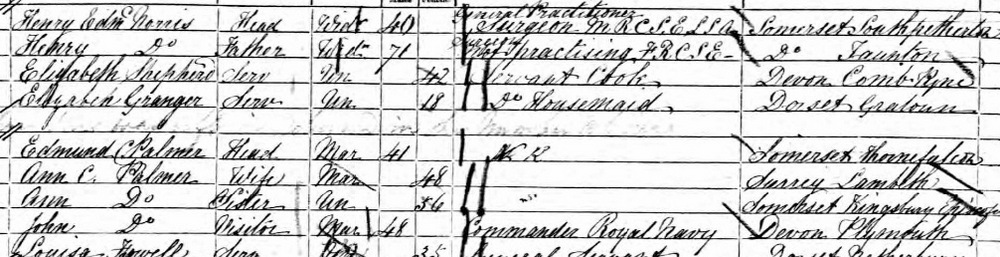 General Practitioner
Henry Edm Norris Head Widr 40 Surgeon M R C S E L S A Somerset South petherton
Henry Do Father Widr 71 practising F R C S E Do Taunton
Elizabeth Shepherd Serv Un 42 Servant Cook Devon Comb Pyne
Elizabeth Granger Serv Un 18 Do Housemaid Dorset
Edmund C Palmer Head Mar 41 Somerset Thornfalcon
Ann C. Palmer Wife Mar 48 Surrey Lambeth
Ann Do Sister Un 36 Somerset Kingsbury
John Do Visitor Mar 48 Commander Royal Navy Devon Plymouth
Louisa Serv 25 General Servant Dorset